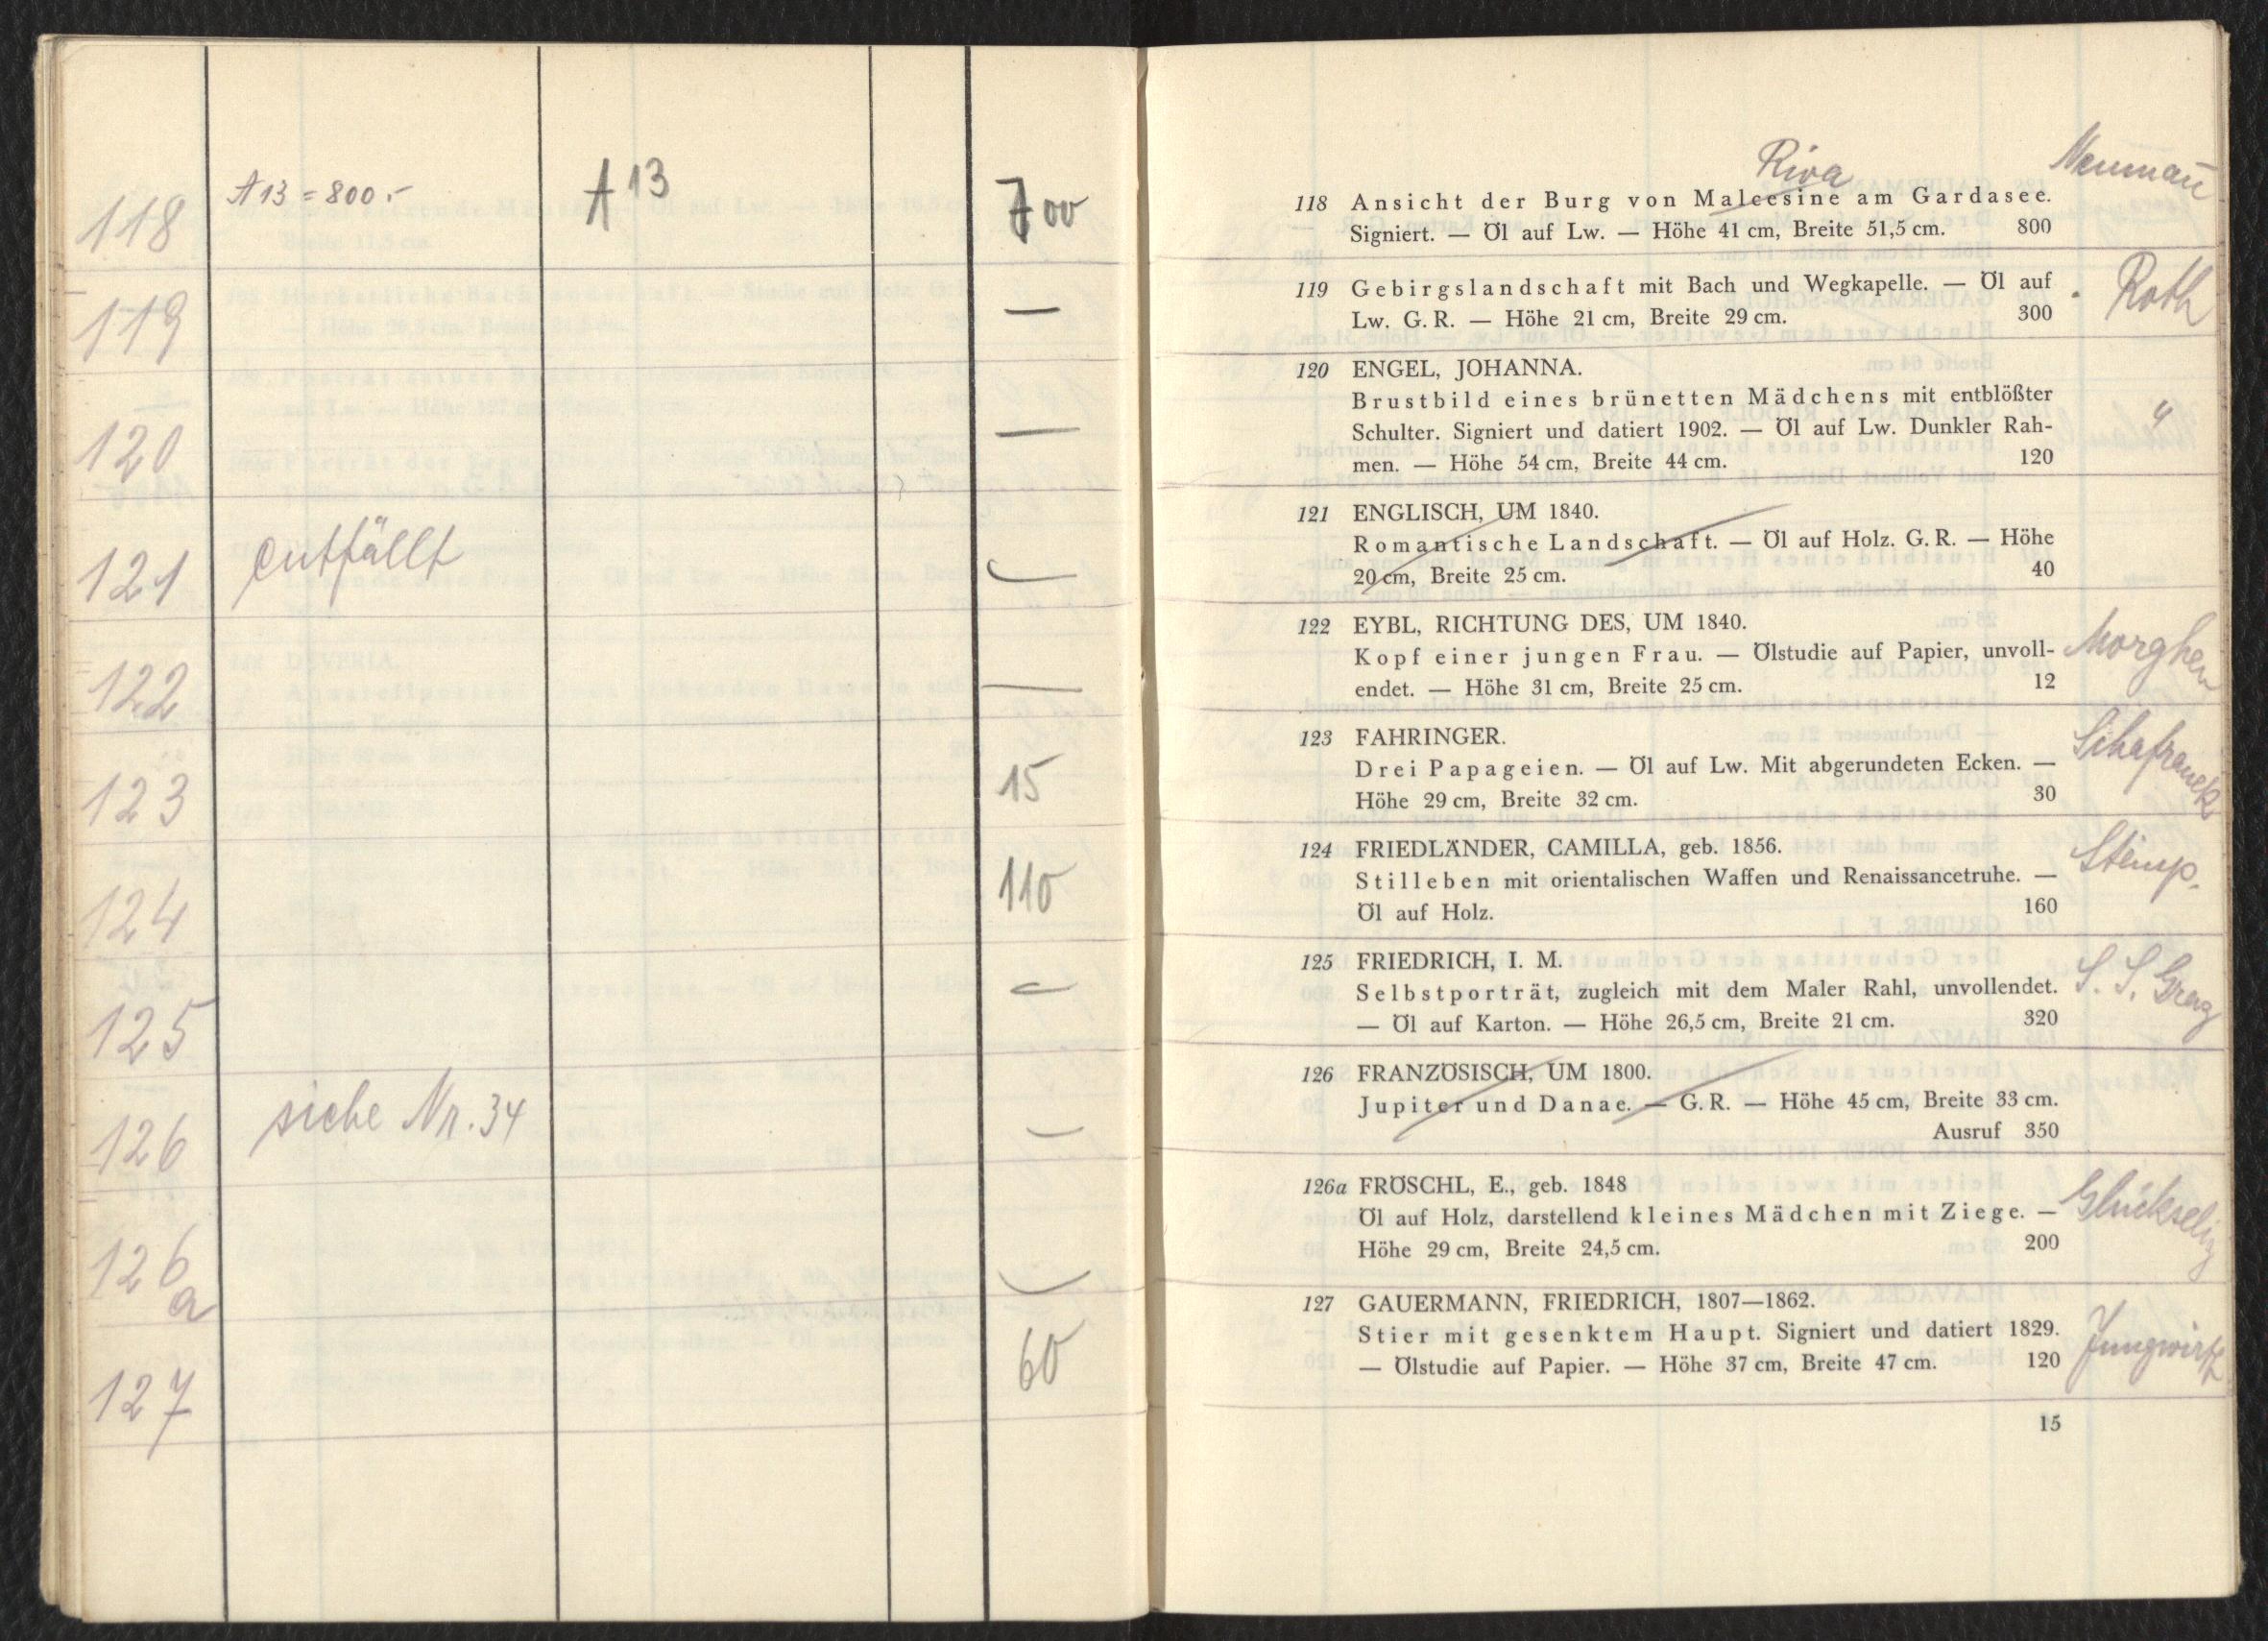 118 A 13 = 800.- A 13 700
119 —
120 —
121 entfällt
122 —
123 15
124 110
125
126 siehe Nr. 34 —
126a
127 60
Riva Neumañ
118 Ansicht der Burg von Malcesine am Gardasee.
Signiert. — Öl auf Lw. — Höhe 41 cm, Breite 51,5 cm. 800
119 Gebirgslandschaft mit Bach und Wegkapelle. — Öl auf Roth
Lw. G. R. — Höhe 21 cm, Breite 29 cm. 300
120 ENGEL, JOHANNA.
Brustbild eines brünetten Mädchens mit entblößter "
Schulter. Signiert und datiert 1902. — Öl auf Lw. Dunkler Rah-
men. — Höhe 54 cm, Breite 44 cm. 120
121 ENGLISCH, UM 1840.
Romantische Landschaft. — Öl auf Holz. G. R. — Höhe
20 cm, Breite 25 cm. 40
122 EYBL, RICHTUNG DES, UM 1840.
Kopf einer jungen Frau. — Ölstudie auf Papier, unvoll- Morghen
endet. — Höhe 31 cm, Breite 25 cm. 12
123 FAHRINGER. Schafranek
Drei Papageien. — Öl auf Lw. Mit abgerundeten Ecken. —
Höhe 29 cm, Breite 32 cm. 30
124 FRIEDLÄNDER, CAMILLA, geb. 1856.
Stilleben mit orientalischen Waffen und Renaissancetruhe. —
Öl auf Holz. 160
125 FRIEDRICH, I. M.
Selbstporträt, zugleich mit dem Maler Rahl, unvollendet.
— Öl auf Karton. — Höhe 26,5 cm, Breite 21 cm. 320
126 FRANZÖSISCH, UM 1800.
Jupiter und Danae. — G. R. — Höhe 45 cm, Breite 33 cm.
Ausruf 350
126a FRÖSCHL, E., geb. 1848
Öl auf Holz, darstellend kleines Mädchen mit Ziege. — Glückselig
Höhe 29 cm, Breite 24,5 cm. 200
127 GAUERMANN, FRIEDRICH, 1807—1862.
Stier mit gesenktem Haupt. Signiert und datiert 1829. Jungwirth
— Ölstudie auf Papier. — Höhe 37 cm, Breite 47 cm. 120
15